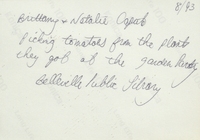 8/93
Brittany & Natalie Caput
Picking tomatoes from the plants
they got at the garden Party
Belleville Public Library